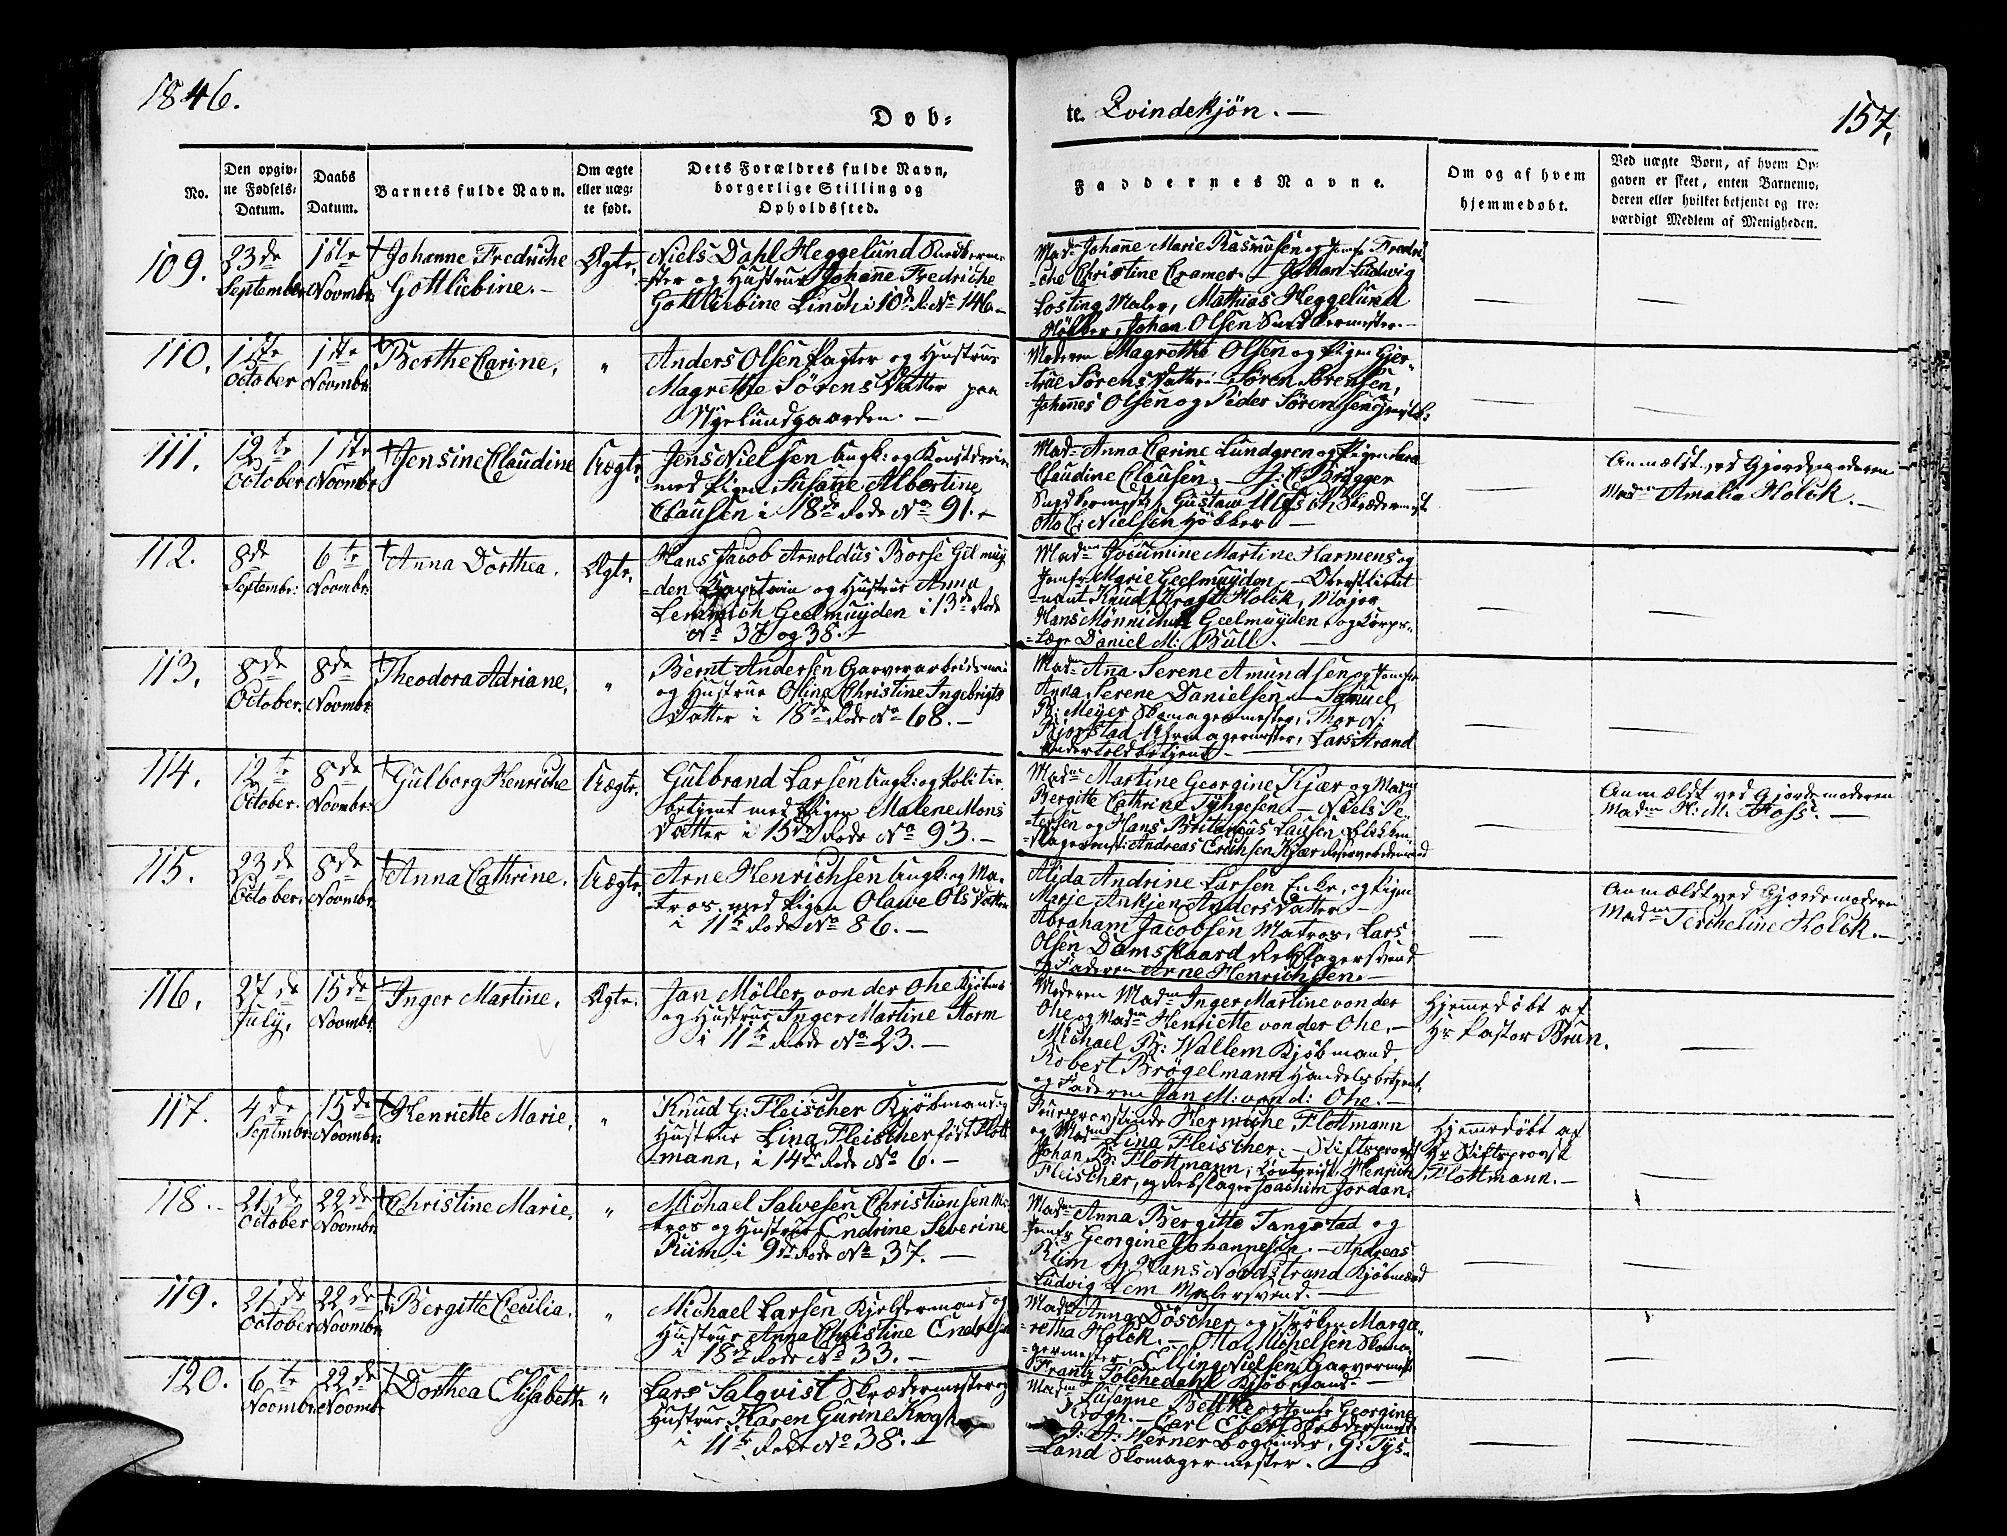 1846.
Døb-
te. Qvindekjøn. —
157.
No.
Den opgiv-
ne Fødsels-
Datum.
Daabs
Datum.
Barnets fulde Navn.
Om ægte
eller uæg-
te født.
Dets Forældres fulde Navn,
borgerlige Stilling og
Opholdssted.
Faddernes Navne.
Om og af hvem
hjemmedøbt.
Ved uægte Børn, af hvem Op-
gaven er skeet, enten Barnemo-
deren eller hvilket bekjendt og tro-
værdigt Medlem af Menigheden.
109.
23de
September
1ste
Novmbr.
Johanne Fredriche
Gottliebine. —
Ægte.
Niels Dahl Heggelund Snedkerme-
ster og Hustrue Johanne Fredriche
Gottliebine Linch i 10de R. No 146. —
Madm Johanne Marie Rasmusen og Jomfr Fredri-
che Christine Cramer. — Johan Ludwig
Losting Maler, Mathias Heggelund
Høkker, Johan Olsen Snedkermester —
110.
1ste
October
1ste
Novmbr.
Berthe Carine.
"
Anders Olsen Pagter og Hustrue
Magrethe Sørens Datter paa
Nygelundgaarden. —
Moderen Magrethe Olsen og Pigen Gjer-
true Sørens Datter. — Søren Sørensen,
Johannes Olsen og Peder Sørensen
111.
12te
October
1ste
Novmbr.
Jensine Claudine
Uægte.
Jens Nielsen Ungk: og
med Pigen Susanne Albertine
Clausen i 18de Rode No 91. —
Madm Anna Carine Lundgren og Pigen
Claudine Clausen. — J: C: Brøgger
Snedkermester, Gustav Skrædermest
Otto C: Nielsen Høkker —
Anmeldt ved Gjordemoderen
Madm Amalia Holck. —
112.
8de
Septembr:
6te
Novmbr.
Anna Dorthea.
Ægte.
Hans Jacob Arnoldus Borse Gelmuy-
den Capitain og Hustrue Anna
Lemmich Geelmuyden i 13de Rode
No 37 og 38. —
Madm Jocumine Martine Harmens og
Jomfr. Marie Geelmuyden. — Oberstlieut-
nant Knud Kragh Holck, Major
Hans Mønnichen Geelmuyden og Corps-
Læge Daniel M: Bull. —
113.
8de
October.
8de
Novmbr.
Theodora Adriane.
"
Bernt Andersen Garverarbeidsman
og Hustrue Oline Christine Ingebrigts
Datter i 18de Rode No 68. —
Madm Ana Serene Amundsen og Jomfr
Anna Serene Danielsen. — Samuel
B: Meyer Skomagermester, Thor N:
Kjorstad Uhrmagermester, Lars Strand
Undertoldbetjent —
114.
12te
October.
8de
Novmbr.
Gulborg Henriche
Uægte.
Gulbrand Larsen Ungk: og Politie-
betjent med Pigen Malene Mons
Datter i 15de Rode No 93. —
Madm Martine Georgine Kjær og Madm
Bergitte Cathrine Tyhgesen. — Niels Pe-
tersen og Hans Britanius Lausen Blokken-
Andreas Erichsen Kjær
Anmeldt ved Gjordemoderen
Madm H: M: Foss. —
115.
23de
October.
8de
Novmbr.
Anna Cathrine.
Uægte.
Arne Henrichsen Ungk: og Ma-
tros med Pigen Olave Ols Datter
i 11te Rode No 86. —
Alida Andrine Larsen Enke, og Pigen
Marie Ankjen Anders Datter —
Abraham Jacobsen Matros, Lars
Olsen Damsgaard Rebslagersvend
og Faderen Arne Henrichsen. —
Anmeldt ved Gjordemoderen
Madm Tercheline Holck. —
116.
27de
July.
15de
Novmbr.
Inger Martine.
Ægte.
Jan Møller von der Ohe Kjøbm:
og Hustrue Inger Martine Storm
i 11te Rode No 23. —
Moderen Madm Inger Martine von der
Ohe og Madm Henriette von der Ohe. —
Michael B: Wallem Kjøbmand,
Robert Brøgelmann Handelsbetjent
og Faderen Jan M: von d: Ohe. —
Hjemmedøbt af
Hr Pastor Brun.
117.
4de
Septmbr:
15de
Novmbr:
Henriette Marie.
"
Knud G: Fleischer Kjøbmand og
Hustrue Lina Fleischer født Flott-
mann, i 14de Rode No 6. —
Frue Provstinde Hermiche Flottmann
og Madm Lina Fleischer. — Stiftsprovst
Johan B: Flottmann, Henrich
Fleischer, og Rebslager Joachim Jordan.
Hjemmedøbt af
Hr Stiftsprovst
Flottmann. —
118. -
21de
October
22de
Novmbr.
Christine Marie.
"
Michael Salvesen Christiansen Ma-
tros og Hustrue Endrine Severine
Riim i 9de Rode No 37. —
Madm Anna Bergitte Tangstad og
Jomfr Georgine Johannesen. — Andreas
Riim og Hans Nordstrand Kjøbmænd
Ludvig Lem Malersvend. —
119.
21de
October
22de
Novmbr
Bergitte Cecilia.
"
Michael Larsen Kjeldermand og
Hustrue Anna Christine Endresen
i 18de Rode No 33. —
Madm Anna Döscher og Frøken Marga-
retha Holck. — Otto Michelsen Skoma-
germester, Elling Nielsen Garvermest
Frantz Tolchedahl Kjøbmand. —
120.
6te
Novmbr.
22de
Novmbr.
Dorthea Elisabeth
"
Lars Salqvist Skrædermester og
Hustrue Karen Gurine Krogh
i 11te Rode No 38. —
Madm Susanne Beltke og Jomfr Georgine
Krogh. — Carl Ebert Skrædermest
J: A: Werner Bogbinder, G: Tys-
land Skomagermester. —